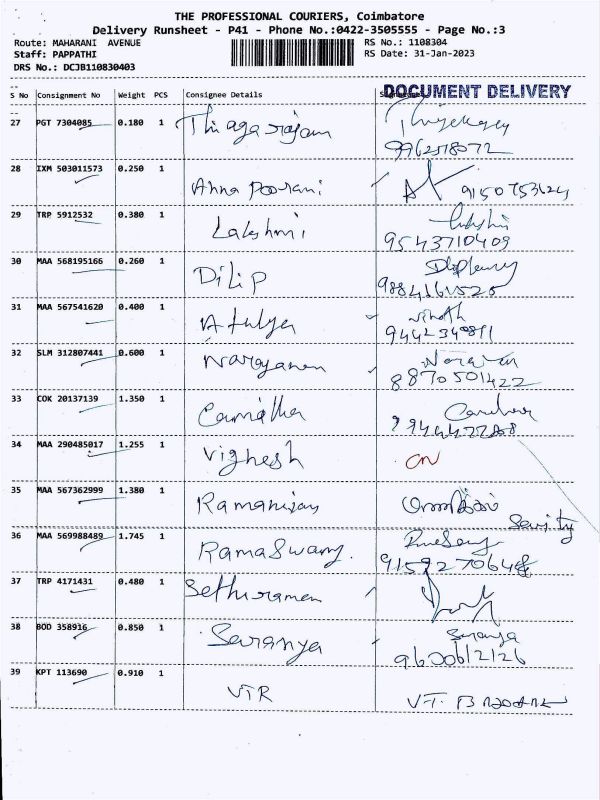 THE PROFESSIONAL COURIERS, Coimbatore
Delivery Runsheet - P41 - Phone No.:0422-3505555 - Page No.:3
Route: MAHARANI AVENUE RS No.: 1108304
Staff: PAPPATHI RS Date: 31-Jan-2023
DRS No.: DCJB110830403
DOCUMENT DELIVERY
S No Consignment No Weight PCS Consignee Details
27 PGT 7304085 0.180 1 Thiagarajan
9962578072
28 IXM 503011573 0.250 1 Anna Poorani
29 TRP 5912532 0.380 1 Lakshmi
9543710409
30 MAA 568195166 0.260 1 Dilip
31 MAA 567541620 0.400 1 Atulya Vinoth
32 SLM 312807441 0.600 1 Narayanan
8870501422
33 COK 20137139 1.350 1
34 MAA 290485017 1.255 1 Vighesh CN
35 MAA 567362999 1.380 1
36 MAA 569988489 1.745 1 RamaSwamy.
37 TRP 4171431 0.480 1 Sethuraman
38 BOD 358916 0.850 1 Saranya Saranya
39 KPT 113690 0.910 1 VTR